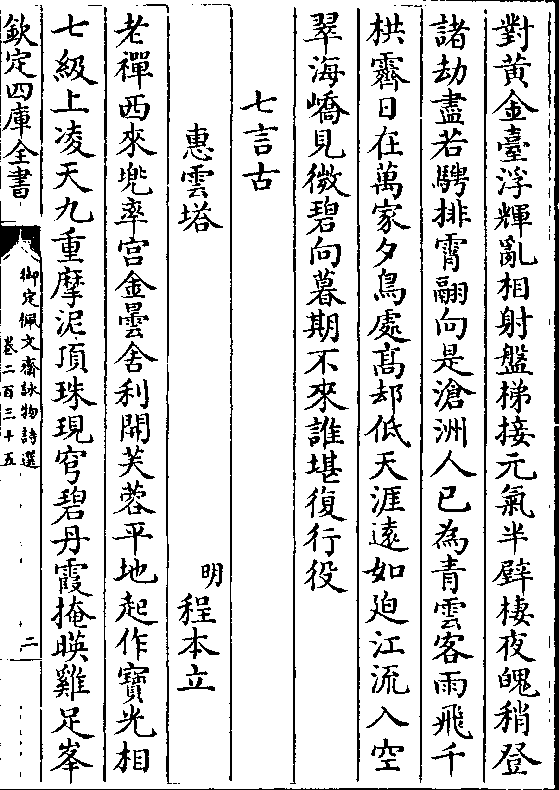 對黃金臺浮輝亂相射盤梯接元氣半壁棲夜魄稍登
諸劫盡若騁排霄翮向是滄洲人已為青雲客雨飛千
栱霽日在萬家夕鳥處髙却低天涯遠如迫江流入空
翠海嶠見微碧向暮期不來誰堪復行役
七言古
惠雲塔
明程本立
老禪西來兜率宮金曇舍利開芙蓉平地起作寶光相
七級上凌天九重摩泥頂珠現穹碧丹霞掩暎雞足峯
欽定四庫全書
御定佩文齋詠物詩選
卷二百三十五
二